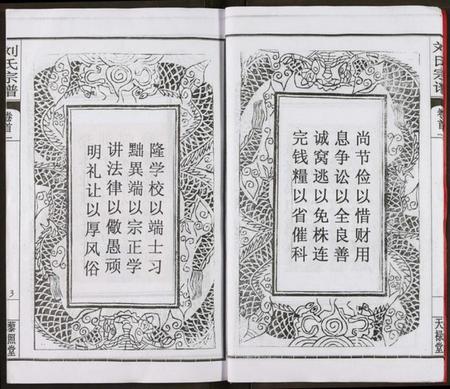 刘氏宗谱
卷首一
天禄堂
尚节俭以惜财用
息争讼以全良善
诚窝逃以免株连
完钱糧以省催科
隆学校以端士习
黜異端以宗正学
讲法律以儆愚顽
明礼让以厚风俗
刘氏宗谱
卷首一
3
藜照堂